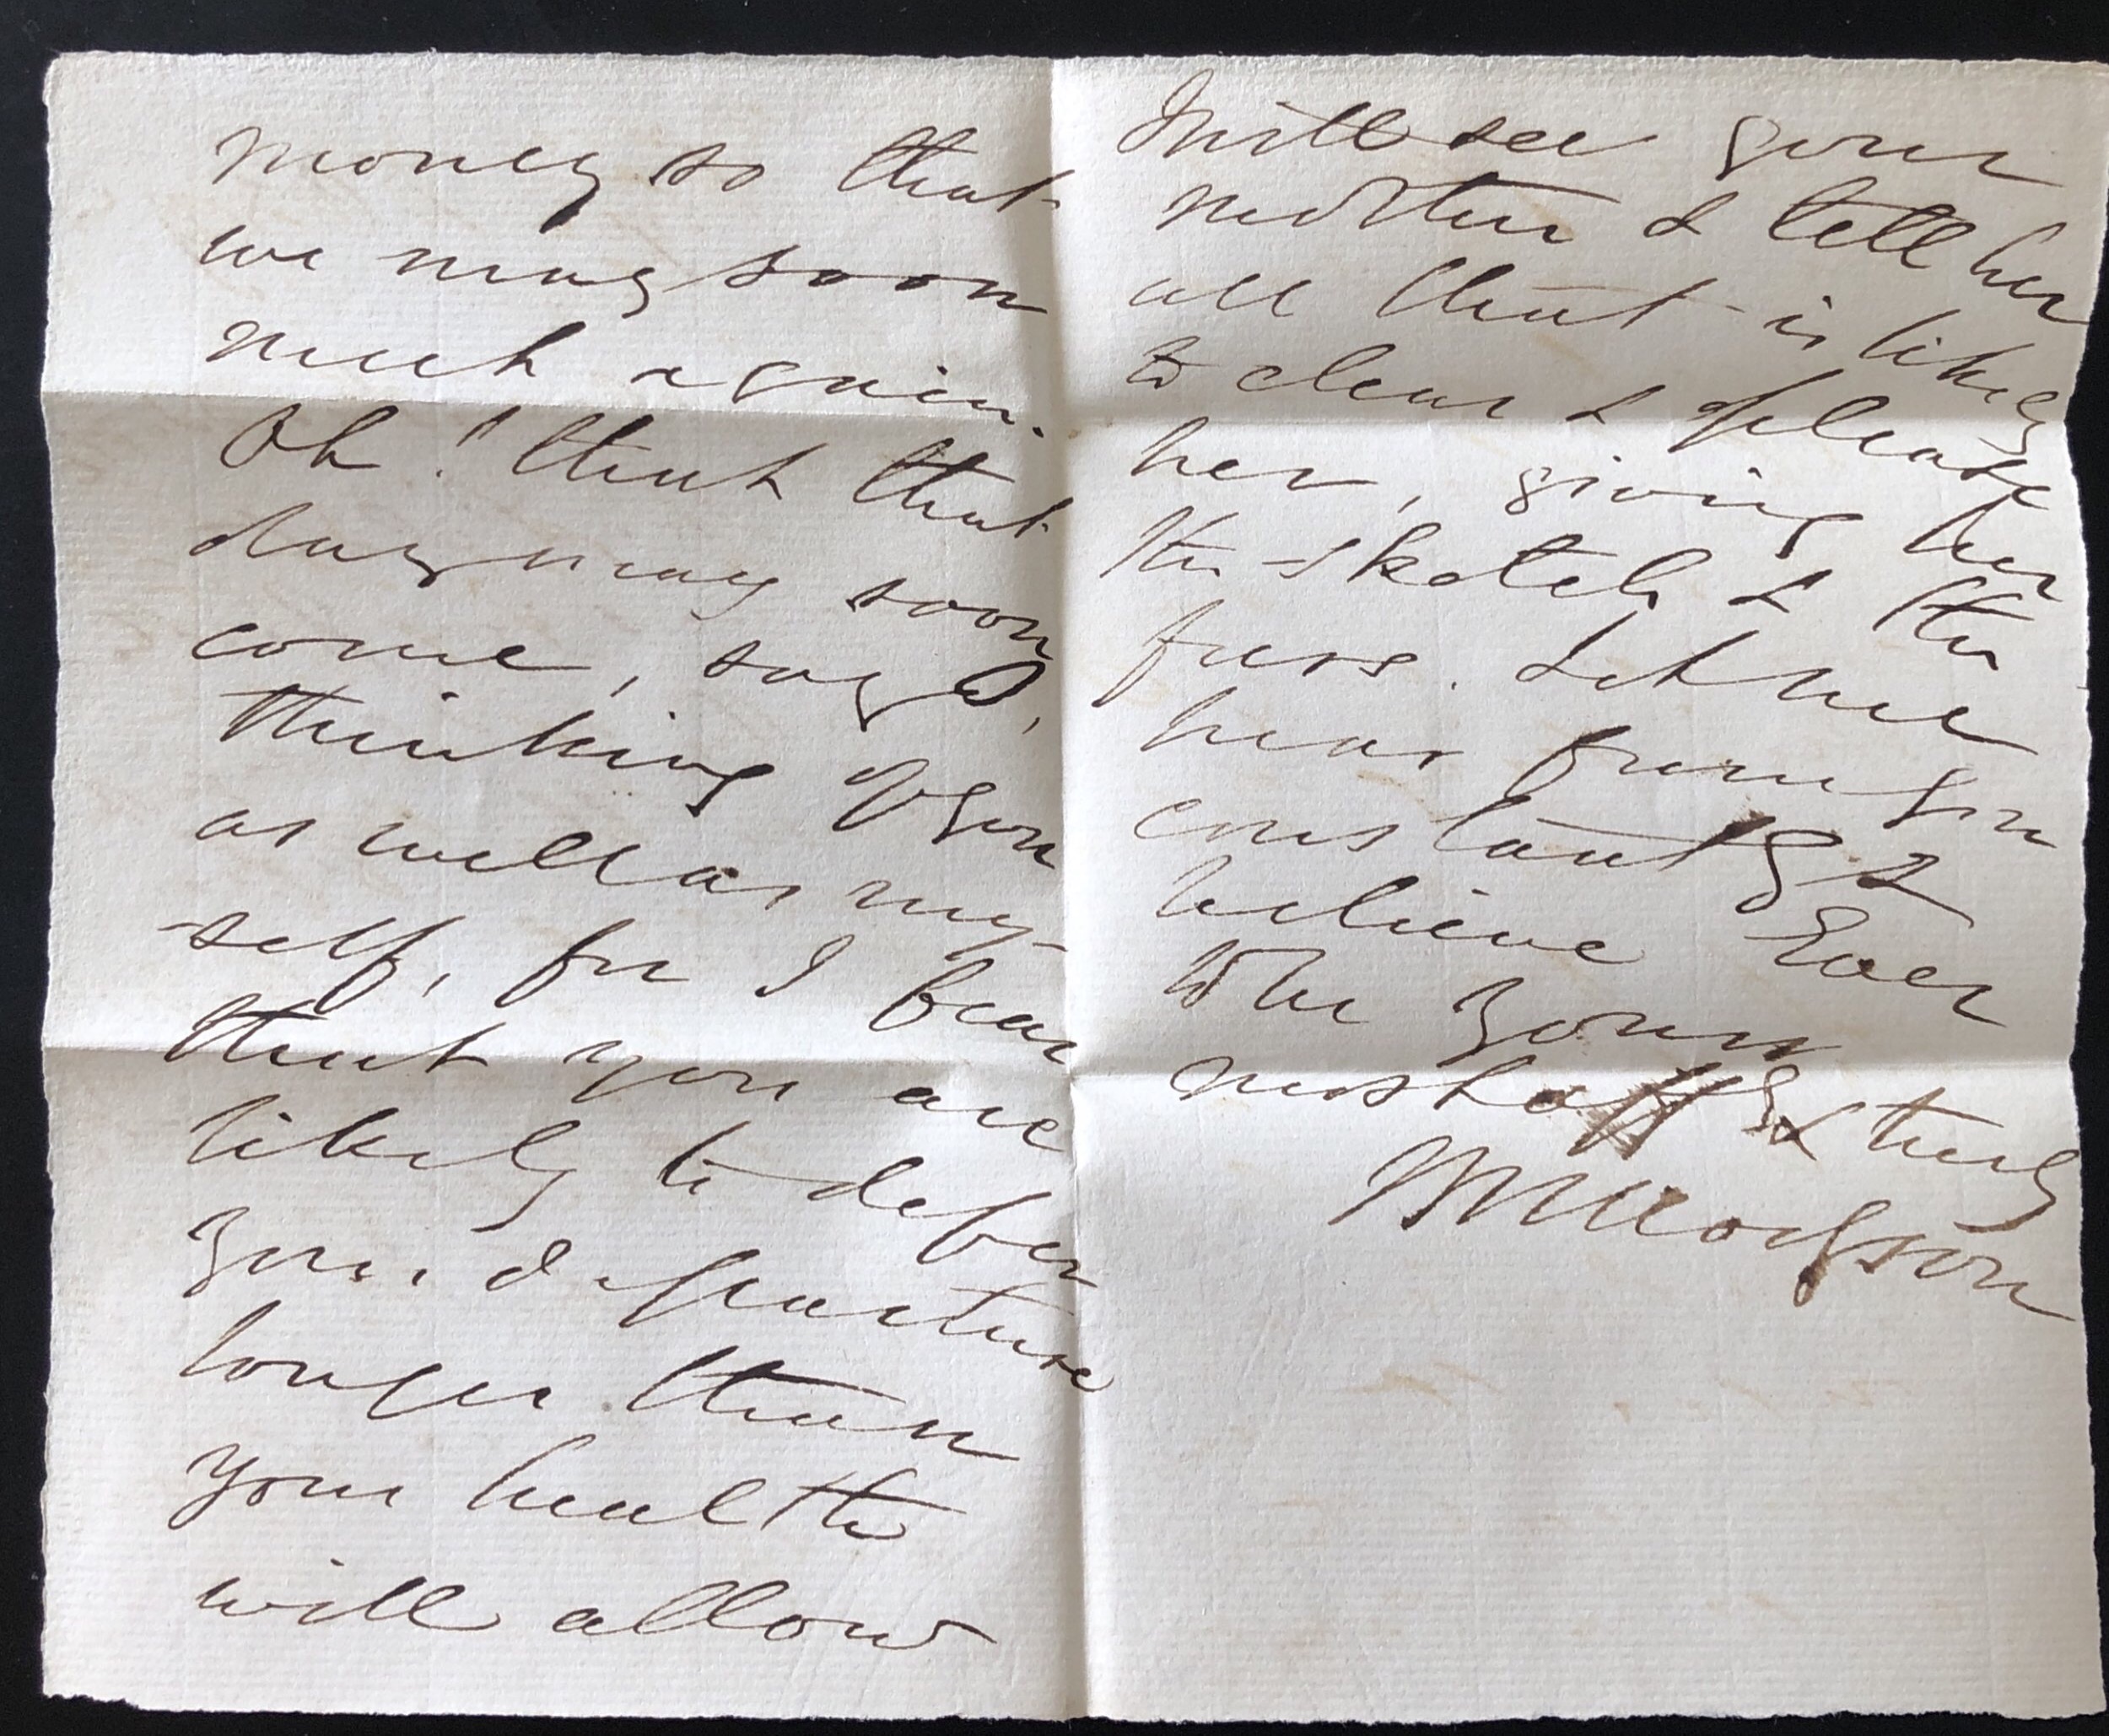 money so that
we may soon
meet again.
Oh! that that
day may soon
come, say I,
thinking of you
as well as my-
self, for I fear
that you are
likely to defer
your departure
longer than
your health
will allow
I will see your
mother & tell her
all that is likely
to cheer & please
her, giving her
the sketch & the
furs. Let me
hear from you
constantly &
believe Ever
to be yours
most aff'ly & truly